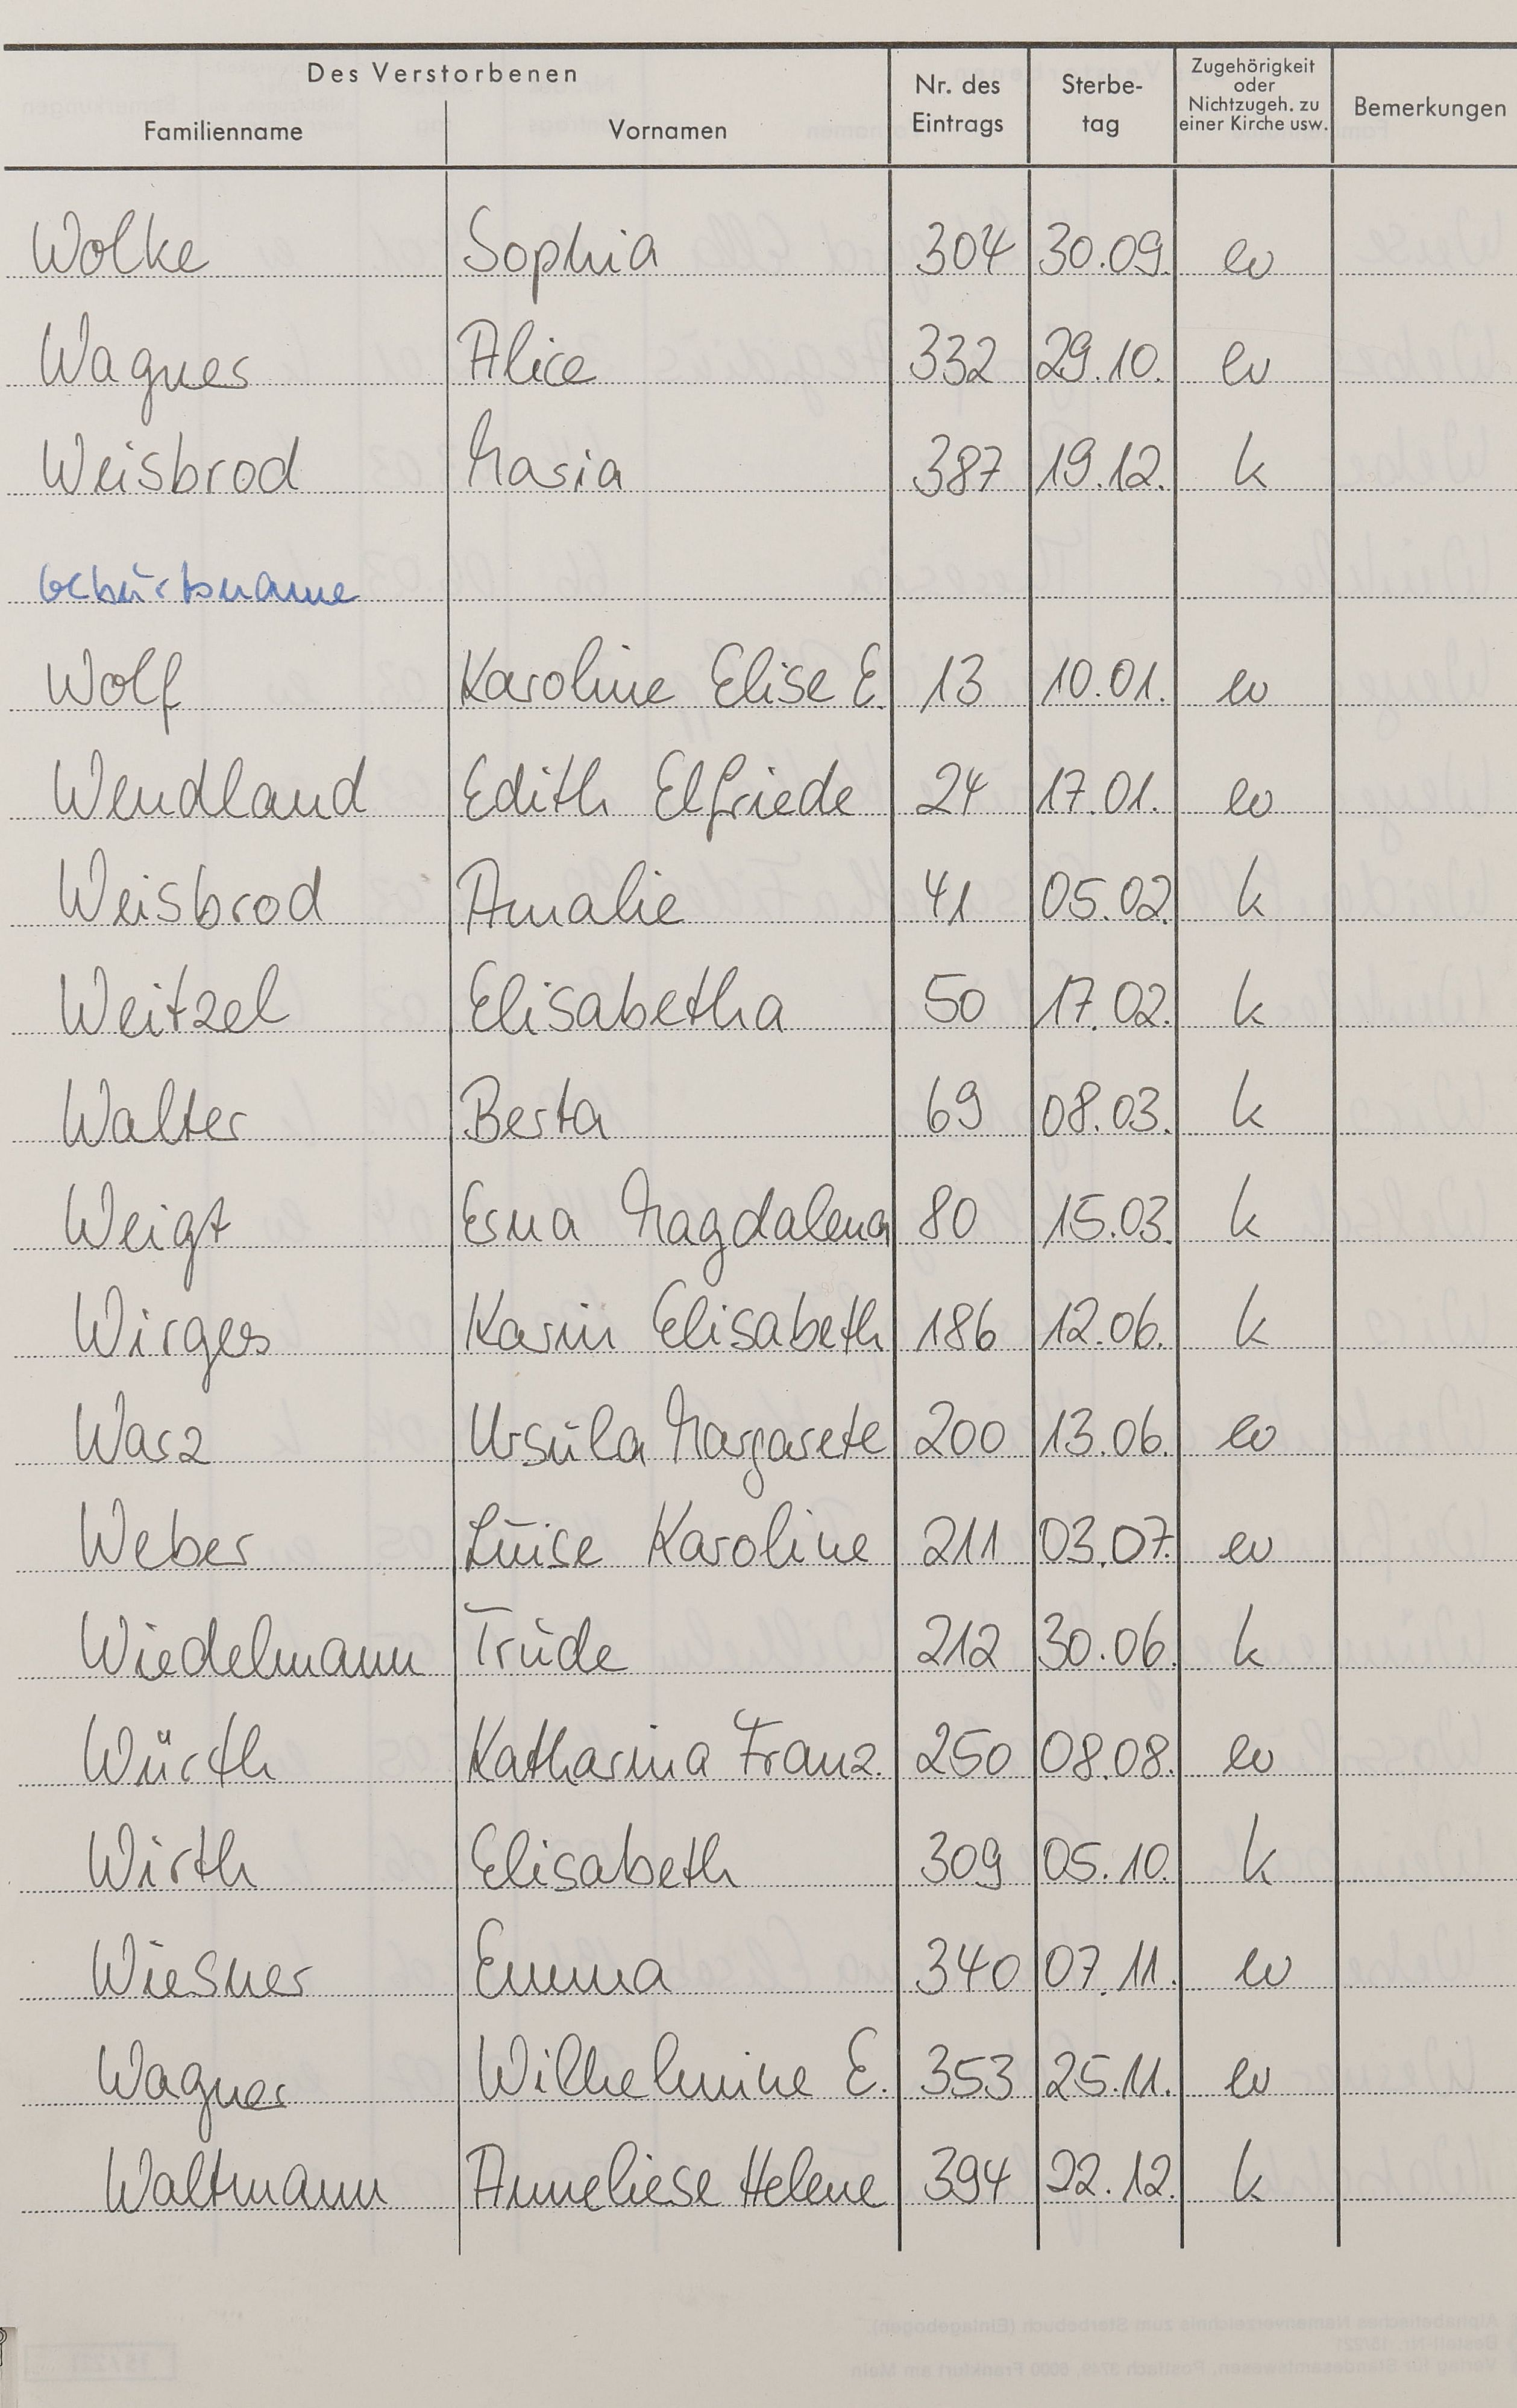 Des Verstorbenen
Familienname Vornamen Nr. des Eintrags Sterbe-tag Zugehörigkeit oder Nichtzugeh. zu einer Kirche usw. Bemerkungen
Wolke Sophia 304 30.09. ev
Wagner Alice 332 29.10. ev
Weisbrod Maria 387 19.12. k
Geburtsname
Wolf Karoline Elise E. 13 10.01. ev
Wendland Edith Elfriede 24 17.01. ev
Weisbrod Amalie 41 05.02. k
Weitzel Elisabetha 50 17.02. k
Walter Berta 69 08.03. k
Weigt Erna Magdalena 80 15.03. k
Wirges Karin Elisabeth 186 12.06. k
Warz Ursula Margarete 200 13.06. ev
Weber Luise Karoline 211 03.07. ev
Wiedelmann Trude 212 30.06. k
Würth Katharina Franz. 250 08.08. ev
Wirth Elisabeth 309 05.10. k
Wiesner Emma 340 07.11. ev
Wagner Wilhelmine E. 353 25.11. ev
Waltmann Anneliese Helene 394 22.12. k